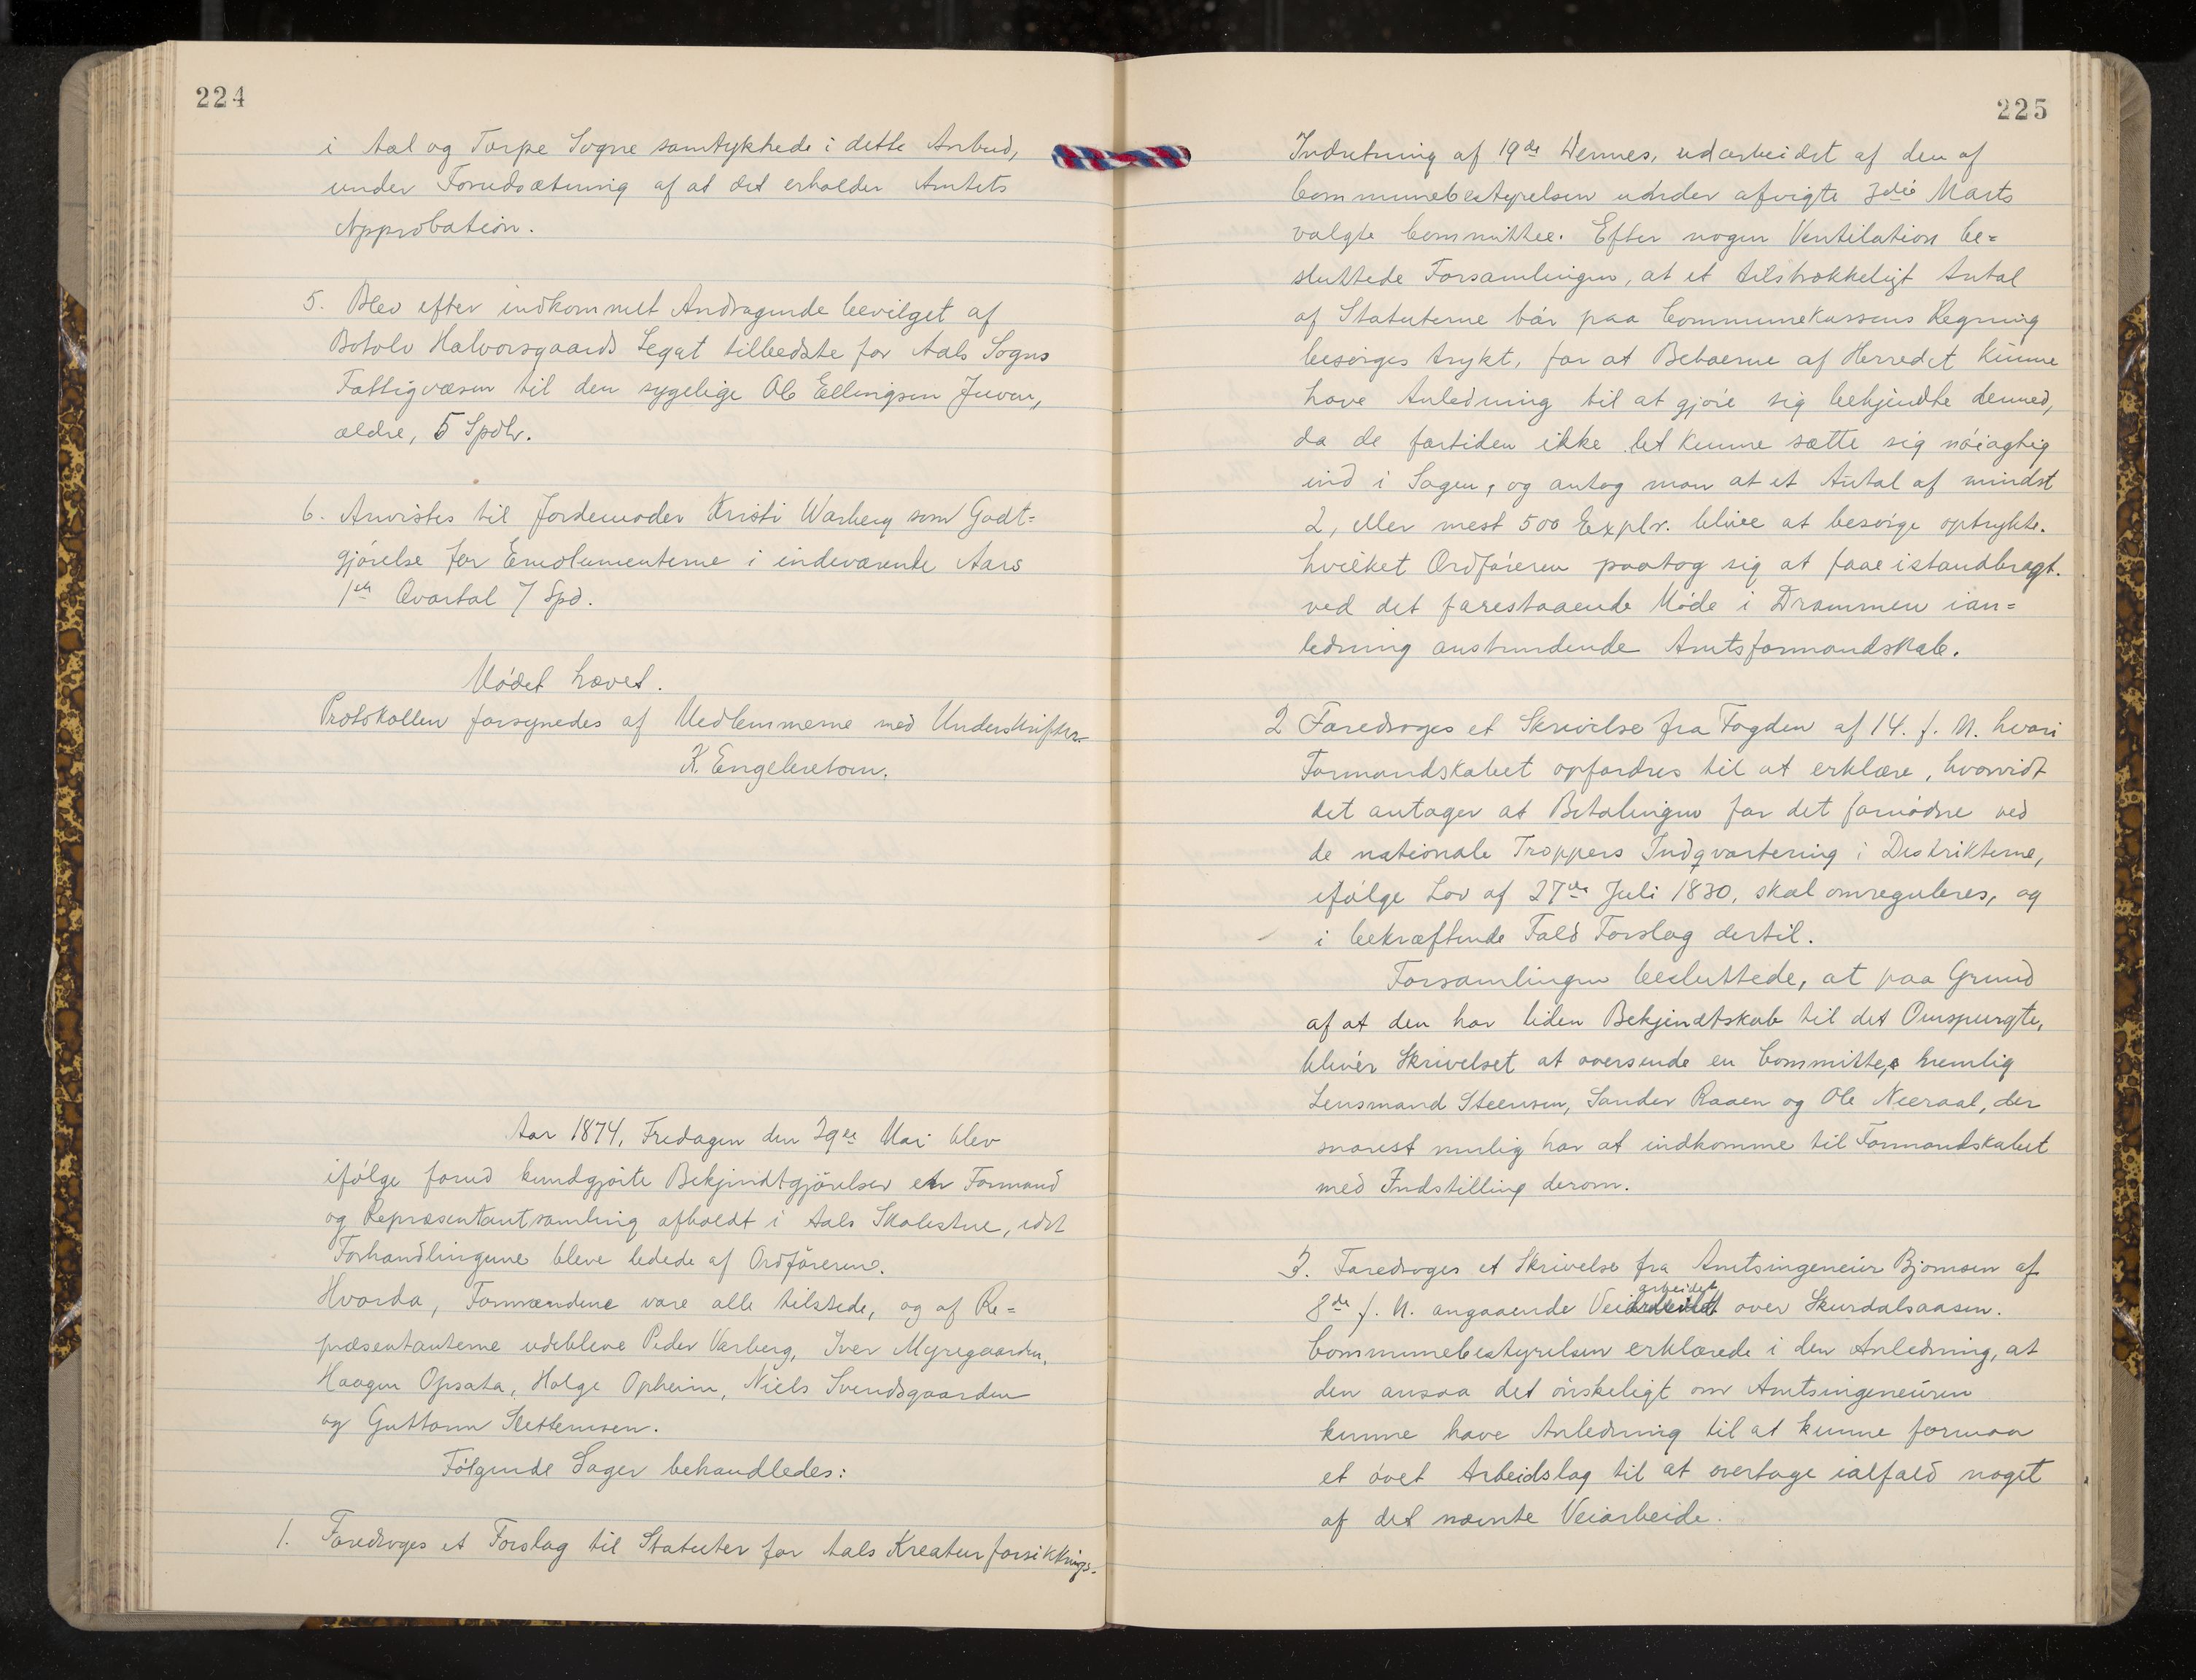 224
i Aal og Torpe Sogne samtykkede i dette Anbud,
under Forudsætning af at det erholder Amtets
Approbation.
5. Blev efter indkommet Andragende bevilget af
Botolv Halvorsgaards Legat tilbedste for Aals Sogns
Fattigvæsen til den sygelige Ole Ellingsen Juven,
ældre, 5 Spdlr.
6. Anvistes til Jordemoder Kristi Warberg som Godt=
gjörelse for Emolumenterne i indeværende Aars
1ste Qvartal 7 Spd.
Mödet hævet.
Protokollen forsynedes af Medlemmerne med Underskrifter.
K. Engebretsen.
Aar 1874, Fredagen den 29de Mai blev
ifölge forud kundgjorte Bekjendtgjörelser en Formand
og Repræsentantsamling afholdt i Aals Skolestue, idet
Forhandlingerne bleve ledede af Ordföreren.
Hvorda, Formændene vare alle tilstede, og af Re=
præsentanterne udebleve Peder Varberg, Iver Myregaarden,
Haagen Opsata, Holge Opheim, Niels Svendsgaarden
og Guttorm Slettemoen.
Fölgende Sager behandledes:
1. Foredroges et Forslag til Statuter for Aals Kreaturforsikkrings-
225
Indretning af 19de Dennes, udarbeidet af den af
Communebestyrelsen under afvigte 3die Marts
valgte Committee. Efter nogen Ventilation be=
sluttede Forsamlingen, at et tilstrækkeligt Antal
af Statuterne bör paa Communekassens Regning
besörges trykt, for at Beboerne af Herredet kunne
have Anledning til at gjöre sig bekjendte dermed,
da de fortiden ikke let kunne sætte sig nöiagtig
ind i Sagen, og antog man at et Antal af mindst
2, eller mest 500 Explr. blive at besörge optrykte.
hvilket Ordföreren paatog sig at faae istandbragt.
ved det forestaaende Möde i Drammen ian=
ledning anstundende Amtsformandskab.
2 Foredroges et Skrivelse fra Fogden af 14. f. M. hvori
Formandskabet opfordres til at erklære, hvorvidt
det antager at Betalingen for det fornödne ved
de nationale Troppers Indqvartering i Distrikterne,
ifölge Lov af 27de Juli 1830, skal omreguleres, og
i bekræftende Fald Forslag dertil.
Forsamlingen besluttede, at paa Grund
af at den har liden Bekjendtskab til det Omspurgte,
bliver Skrivelset at oversende en Committee, nemlig
Lensmand Steensen, Sander Raaen og Ole Neeraal, der
snarest mulig har at indkomme til Formandskabet
med Indstilling derom.
3. Foredroges et Skrivelse fra Amtsingeneiur Bjornsen af
8de f. M. angaaende Veiarbeidet over Skurdalsaasen.
Communebestyrelsen erklærede i den Anledning, at
den ansaa det önskeligt om Amtsingeneüren
kunne have Anledning til at kunne formaa
et övet Arbeidslag til at overtage ialfald noget
af det nævnte Veiarbeide.